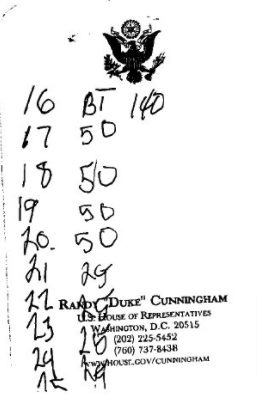 16 BT 140
17 50
18 50
19 50
20. 50
21 25
22 25
RANDY "DUKE" CUNNINGHAM
U.S. HOUSE OF REPRESENTATIVES
23 25
WASHINGTON, D.C. 20515
(202) 225-5452
(760) 737-8438
24
WWW.HOUSE.GOV/CUNNINGHAM
25